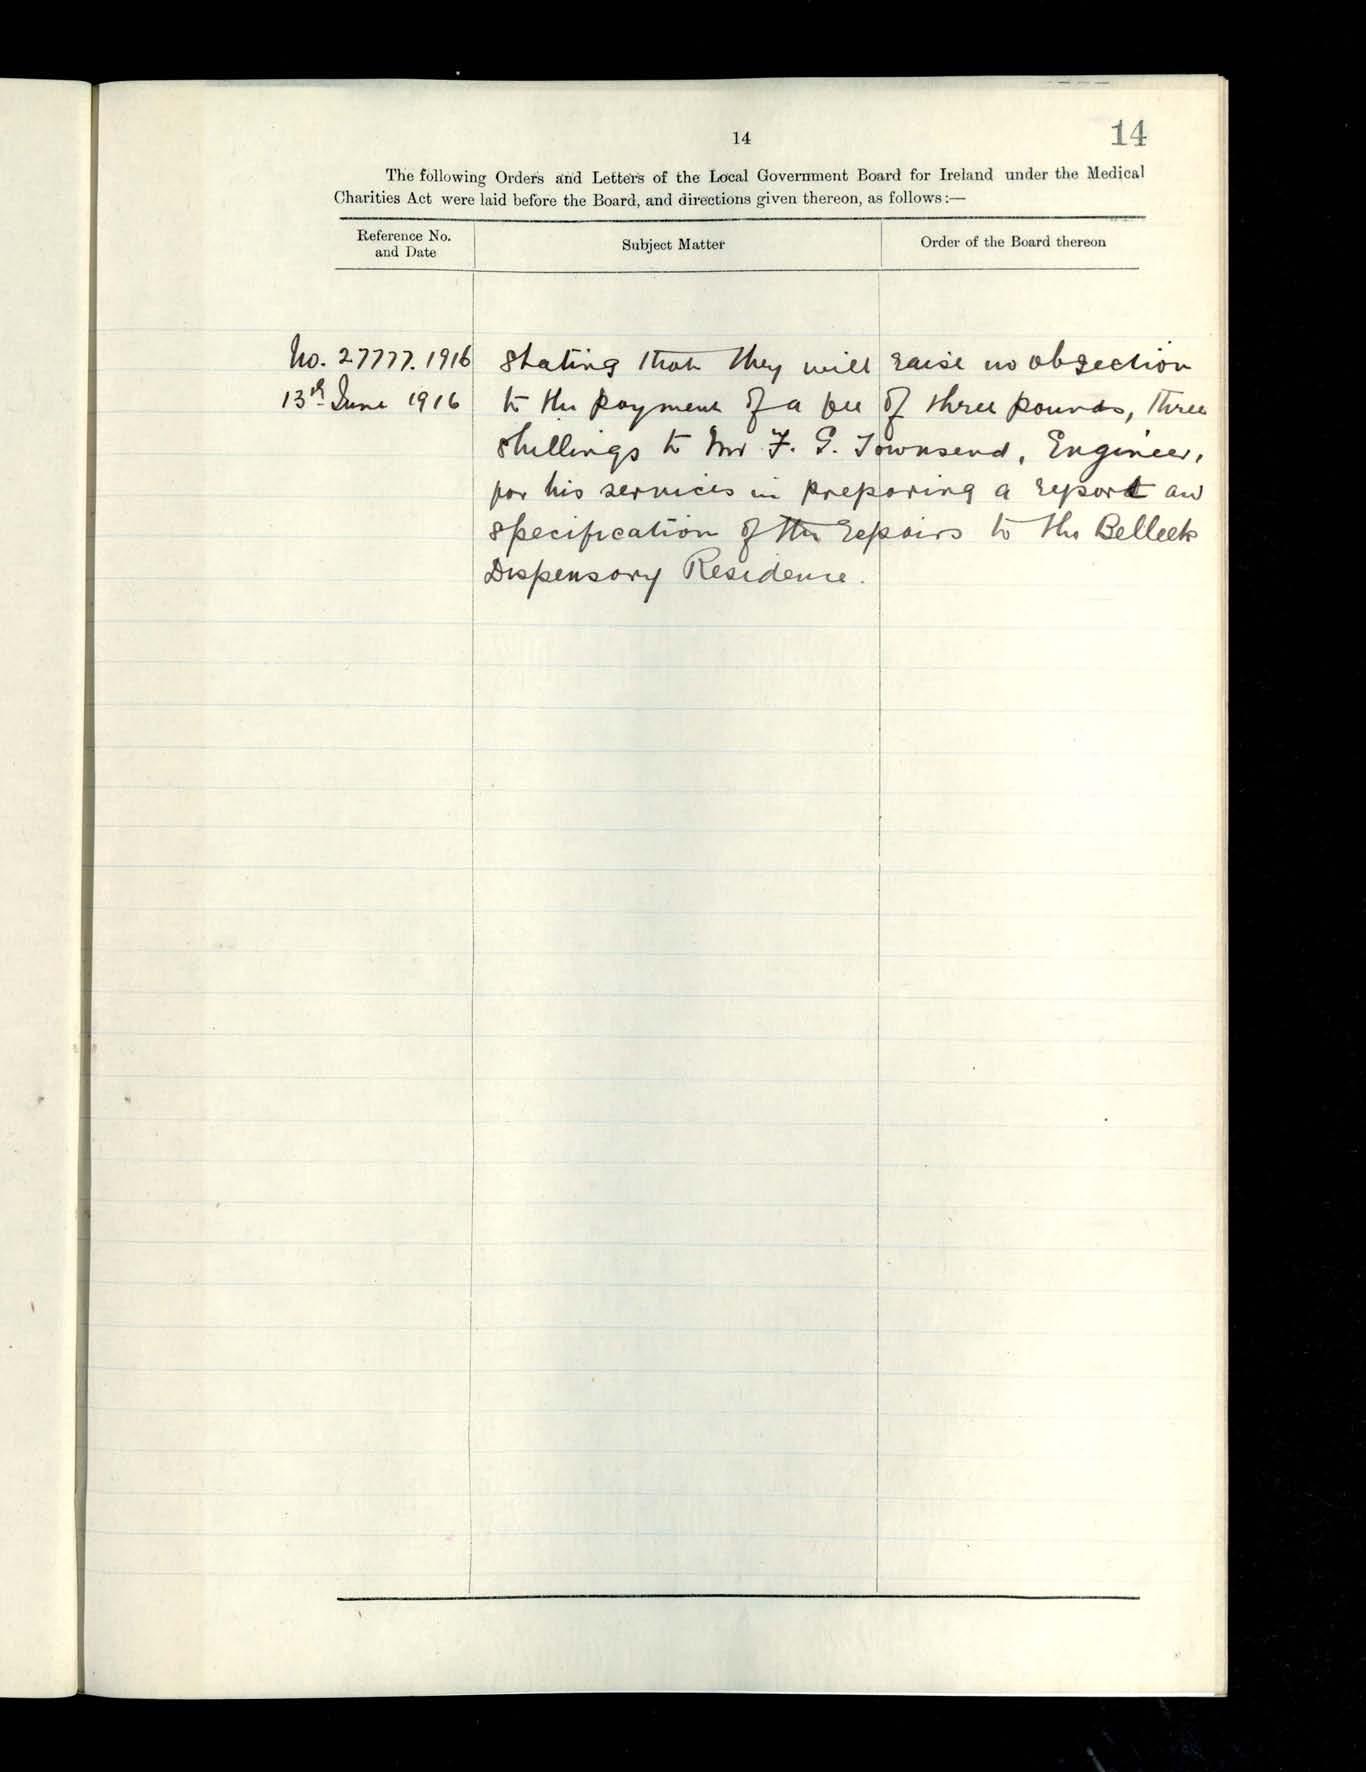 14
14
The following Orders and Letters of the Local Government Board for Ireland under the Medical
Charities Act were laid before the Board, and directions given thereon, as follows:—
Reference No.
and Date
Subject Matter
Order of the Board thereon
No. 27777. 1916 Stating that they will raise no objection
13th June 1916 to the payment of a fee of three pounds, three
shillings to Mr F. G. Townsend, Engineer,
for his services in preparing a report and
specification of the repairs to the Belleek
Dispensary Residence.